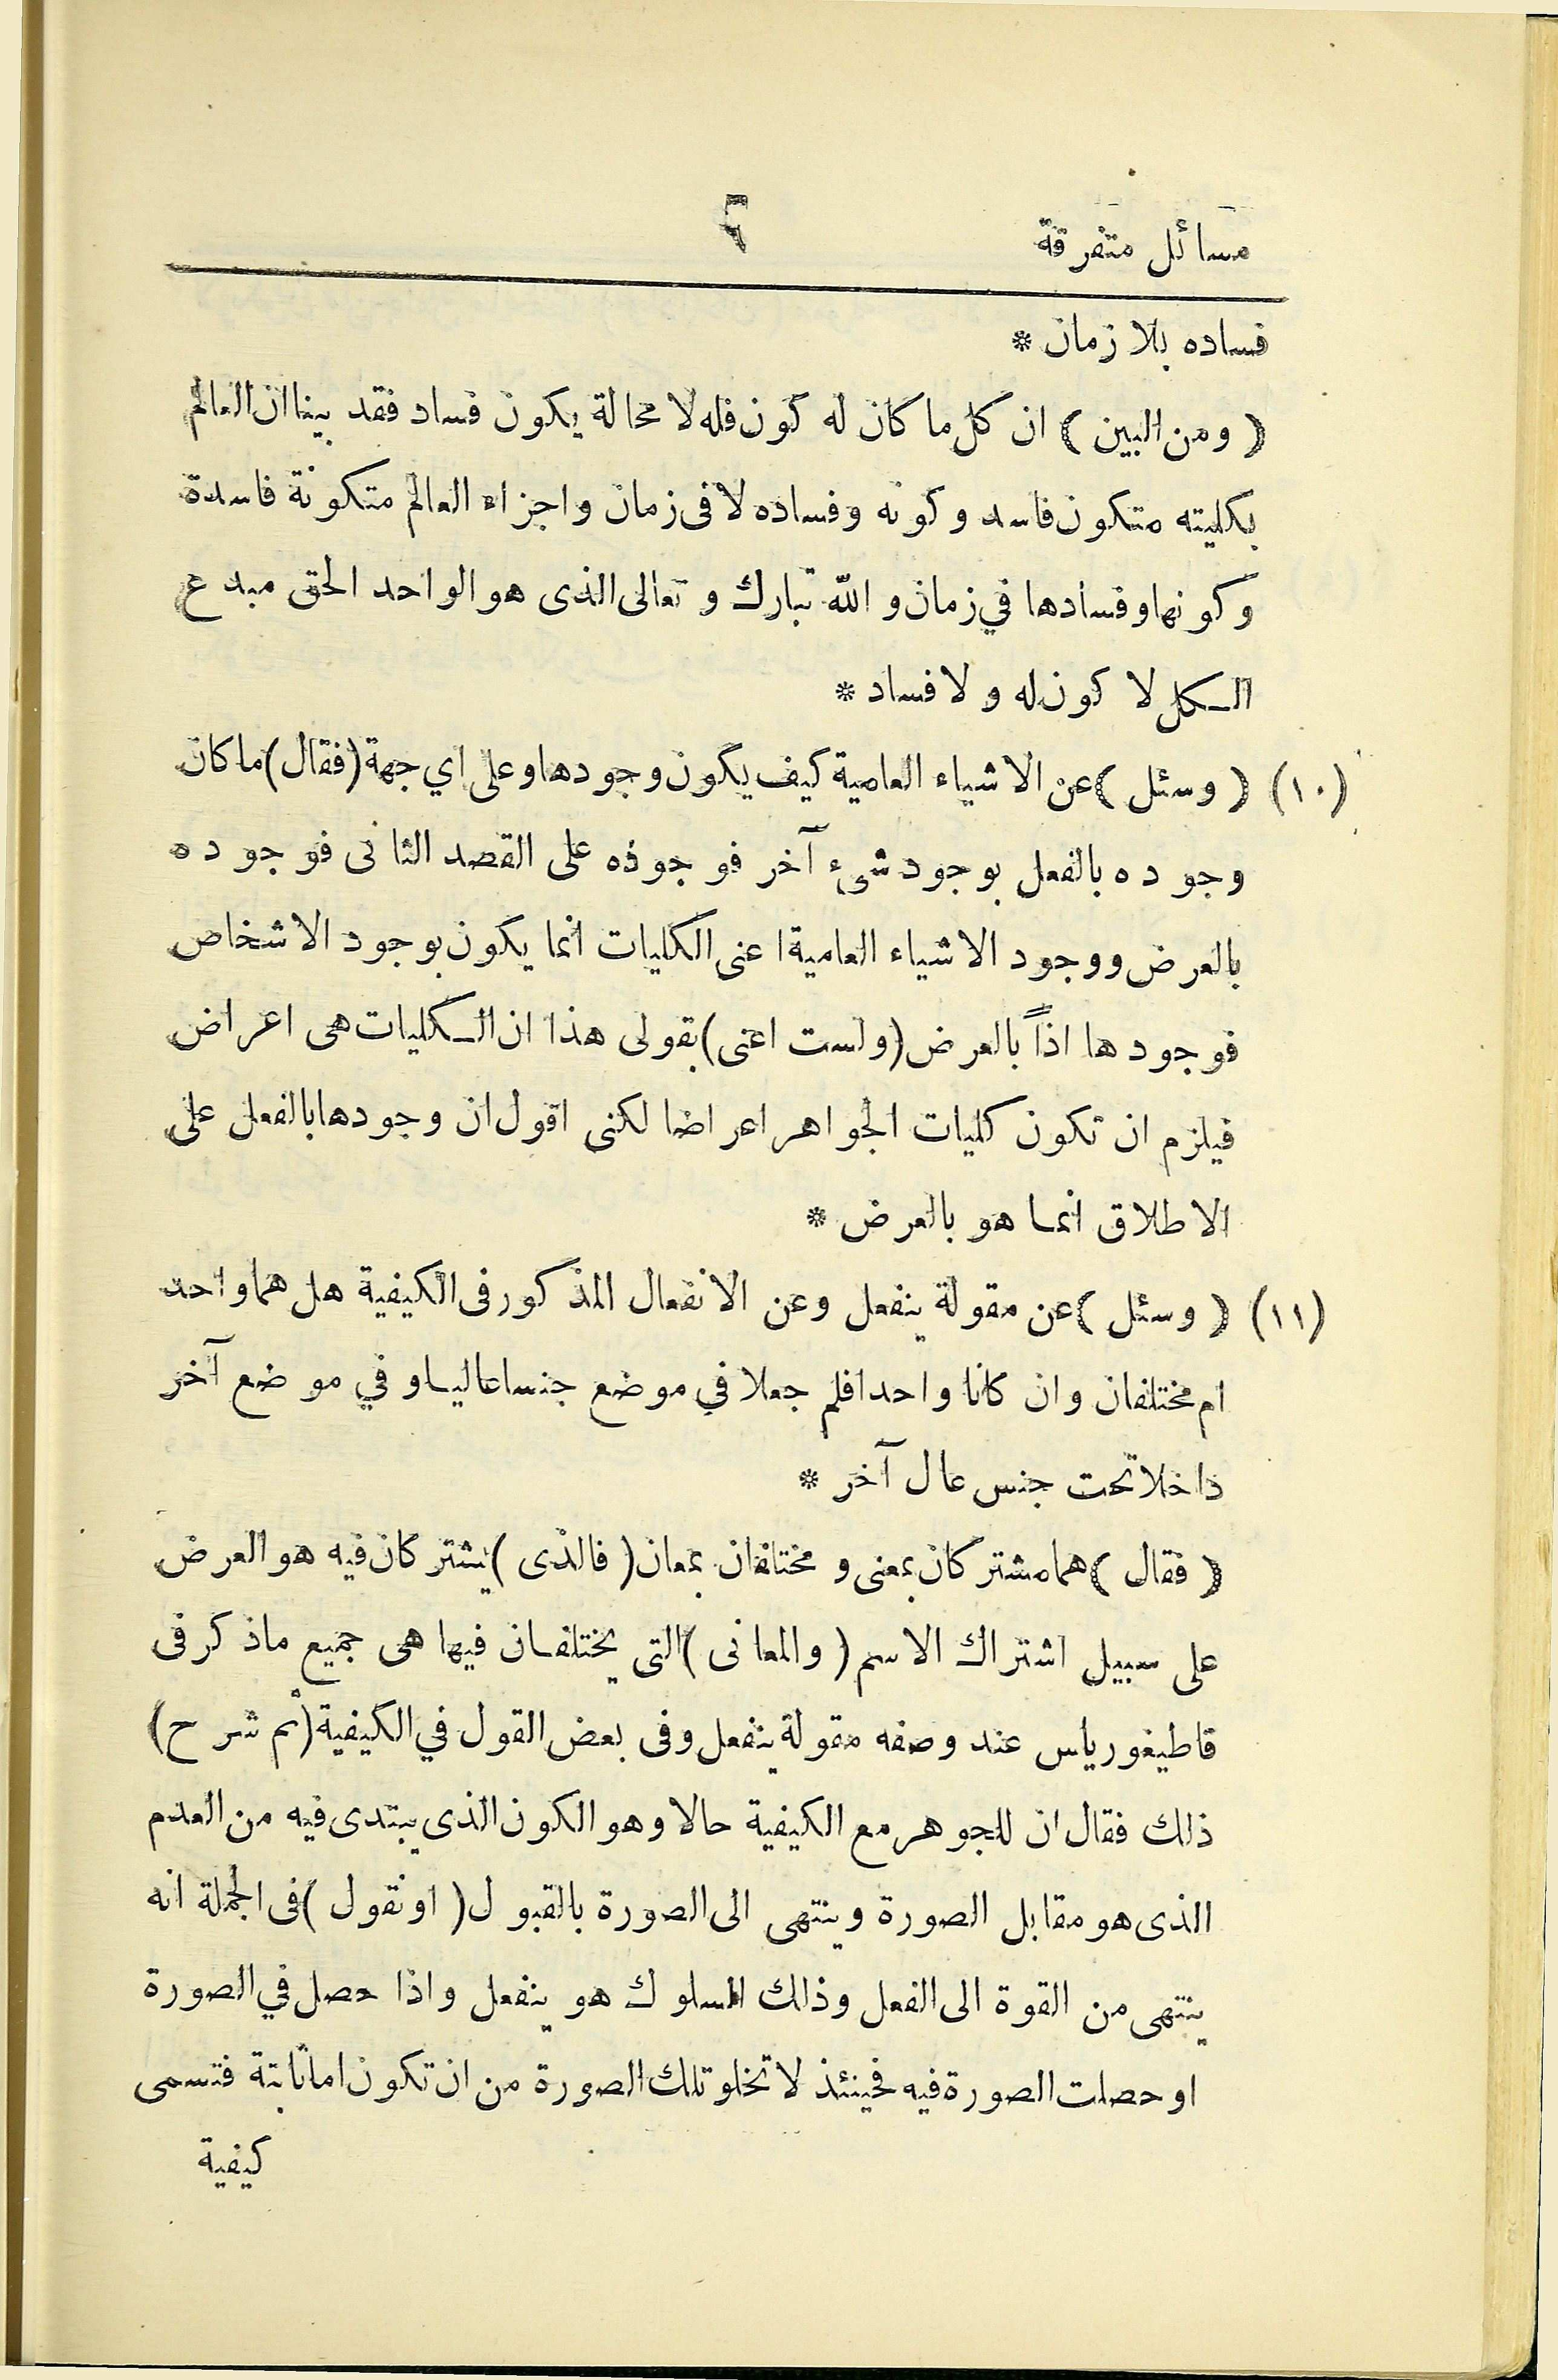 مسائل متفرقة
٦
فساده بلا زمان *
( ومن البين ) ان كل ما كان له كون فله لا محالة يكون فساد فقد بينا ان العالم
بكليته متكون فاسد وكونه وفساده لا فى زمان واجزاء العالم متكونة فاسدة
وكونها وفسادها في زمان و الله تبارك و تعالى الذى هو الواحد الحق مبدع
الكل لا كون له و لا فساد *
(١٠) ( وسئل ) عن الاشياء العامية كيف يكون وجودها وعلى اي جهة (فقال) ما كان
وجوده بالفعل بوجود شىء آخر فوجوده على القصد الثانى فوجوده
بالعرض ووجود الاشياء العامية اعنى الكليات انما يكون بوجود الاشخاص
فوجودها اذاً بالعرض (ولست اعنى) بقولى هذا ان الكليات هى اعراض
فيلزم ان تكون كليات الجواهر اعراضا لكنى اقول ان وجودها بالفعل على
الاطلاق انما هو بالعرض *
(١١) ( وسئل ) عن مقولة ينفعل وعن الانفعال المذكور فى الكيفية هل هما واحد
ام مختلفان وان كانا واحدا فلم جعلا في موضع جنسا عاليا و في موضع آخر
داخلا تحت جنس عال آخر *
( فقال ) هما مشتركان بمعنى و مختلفان بمعان ( فالذى ) يشتركان فيه هو العرض
على سبيل اشتراك الاسم ( والمعانى ) التى يختلفان فيها هى جميع ما ذكر فى
قاطيغورياس عند وصفه مقولة ينفعل وفى بعض القول في الكيفية (ثم شرح)
ذلك فقال ان للجوهر مع الكيفية حالا وهو الكون الذى يبتدى فيه من العدم
الذى هو مقابل الصورة وينتهى الى الصورة بالقبول ( او نقول ) فى الجملة انه
ينتهى من القوة الى الفعل وذلك السلوك هو ينفعل واذا حصل في الصورة
او حصلت الصورة فيه فحينئذ لا تخلو تلك الصورة من ان تكون اما ثابتة فتسمى
كيفية